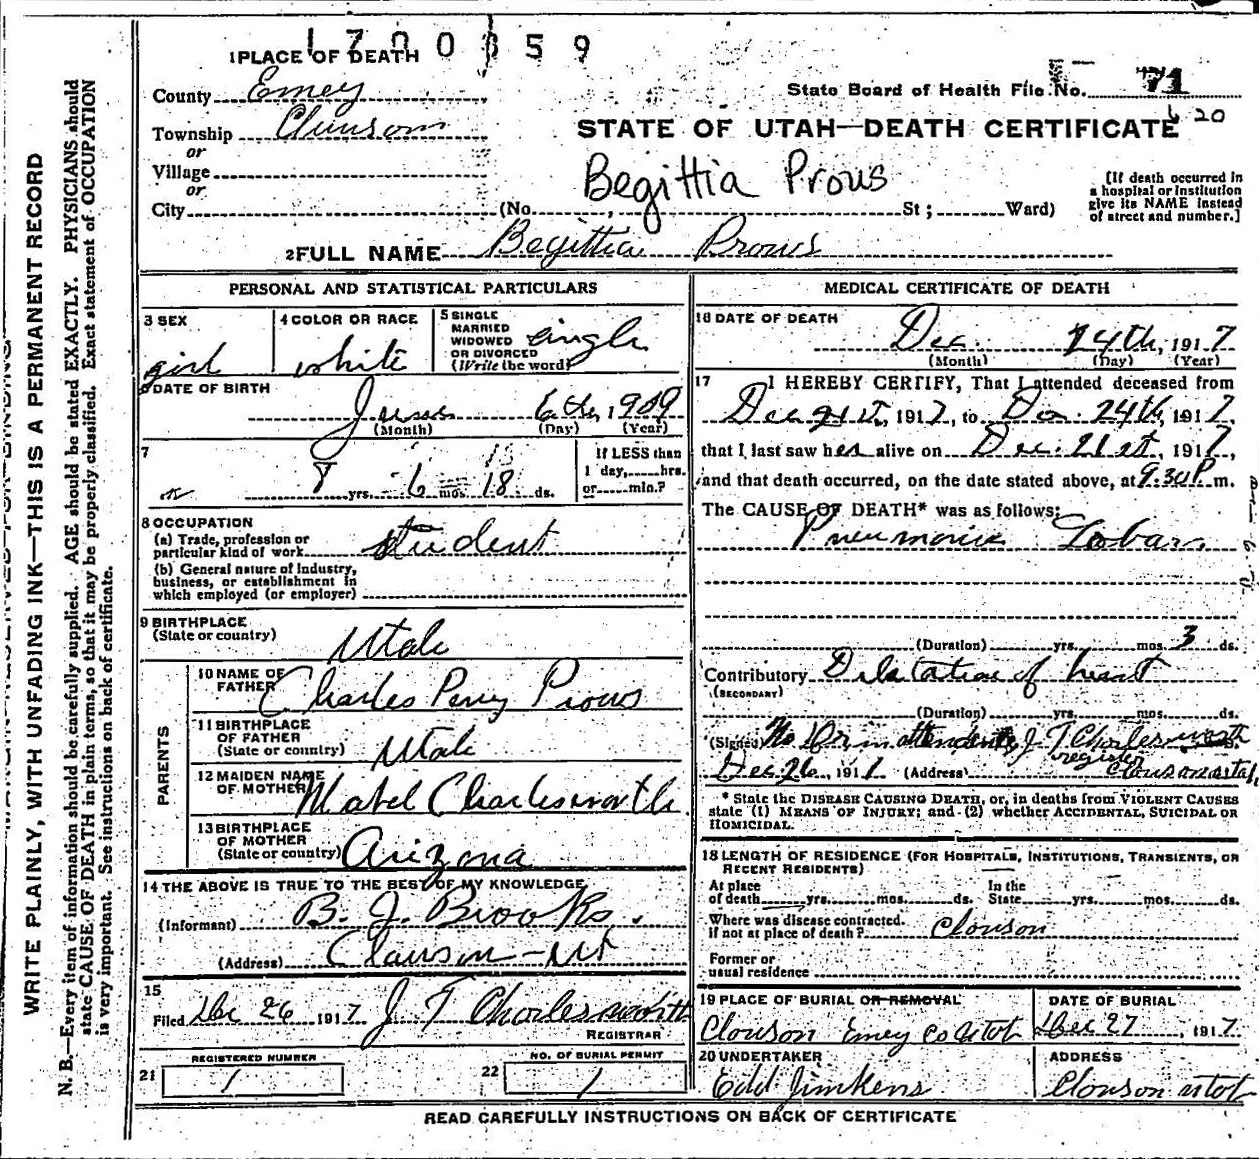 1700059
1 PLACE OF DEATH
County Emey
Township Clawson
or
Village
or
City (No. , St ; Ward)
State Board of Health File No. 71
20
STATE OF UTAH—DEATH CERTIFICATE
Begittia Prous
[If death occurred in
a hospital or institution
give its NAME instead
of street and number.]
2 FULL NAME Begittia Prows
PERSONAL AND STATISTICAL PARTICULARS
3 SEX
girl
4 COLOR OR RACE
white
5 SINGLE
MARRIED
WIDOWED
OR DIVORCED
(Write the word)
single
6 DATE OF BIRTH
June 6th, 1909
(Month) (Day) (Year)
7
8 yrs. 6 mos. 18 ds.
If LESS than
1 day, hrs.
or min.?
8 OCCUPATION
(a) Trade, profession or
particular kind of work student
(b) General nature of industry,
business, or establishment in
which employed (or employer)
9 BIRTHPLACE
(State or country) Utah
PARENTS
10 NAME OF
FATHER Charles Perry Prows
11 BIRTHPLACE
OF FATHER
(State or country) Utah
12 MAIDEN NAME
OF MOTHER Mabel Charlesworth
13 BIRTHPLACE
OF MOTHER
(State or country) Arizona
14 THE ABOVE IS TRUE TO THE BEST OF MY KNOWLEDGE
(Informant) B. J. Brooks.
(Address) Clawson—Ut
15
Filed Dec 26 1917 J T Charlesworth
REGISTRAR
21 REGISTERED NUMBER
1
22 NO. OF BURIAL PERMIT
1
MEDICAL CERTIFICATE OF DEATH
16 DATE OF DEATH
Dec. 24th, 1917
(Month) (Day) (Year)
17 I HEREBY CERTIFY, That I attended deceased from
Dec 21st, 1917, to Dec. 24th, 1917
that I last saw her alive on Dec. 21st, 1917,
and that death occurred, on the date stated above, at 9.30 P. m.
The CAUSE OF DEATH* was as follows:
Pneumonia Lobar
(Duration) yrs. mos. 3 ds.
Contributory Dilatation of heart
(SECONDARY)
(Duration) yrs. mos. ds.
(Signed) No Dr in attendence J. T. Charlesworth
register
Dec 26, 1911 (Address) Clouson utah
* State the DISEASE CAUSING DEATH, or, in deaths from VIOLENT CAUSES
state (1) MEANS OF INJURY; and (2) whether ACCIDENTAL, SUICIDAL OR
HOMICIDAL.
18 LENGTH OF RESIDENCE (FOR HOSPITALS, INSTITUTIONS, TRANSIENTS, OR
RECENT RESIDENTS)
At place
of death yrs. mos. ds.
In the
State yrs. mos. ds.
Where was disease contracted.
if not at place of death? Clouson
Former or
usual residence
19 PLACE OF BURIAL OR REMOVAL
Clouson Emey co Utot
DATE OF BURIAL
Dec 27, 1917
20 UNDERTAKER
Edd Jimkens
ADDRESS
Clouson utot
READ CAREFULLY INSTRUCTIONS ON BACK OF CERTIFICATE
WRITE PLAINLY, WITH UNFADING INK—THIS IS A PERMANENT RECORD
N. B.—Every item of information should be carefully supplied. AGE should be stated EXACTLY. PHYSICIANS should
state CAUSE OF DEATH in plain terms, so that it may be properly classified. Exact statement of OCCUPATION
is very important. See instructions on back of certificate.